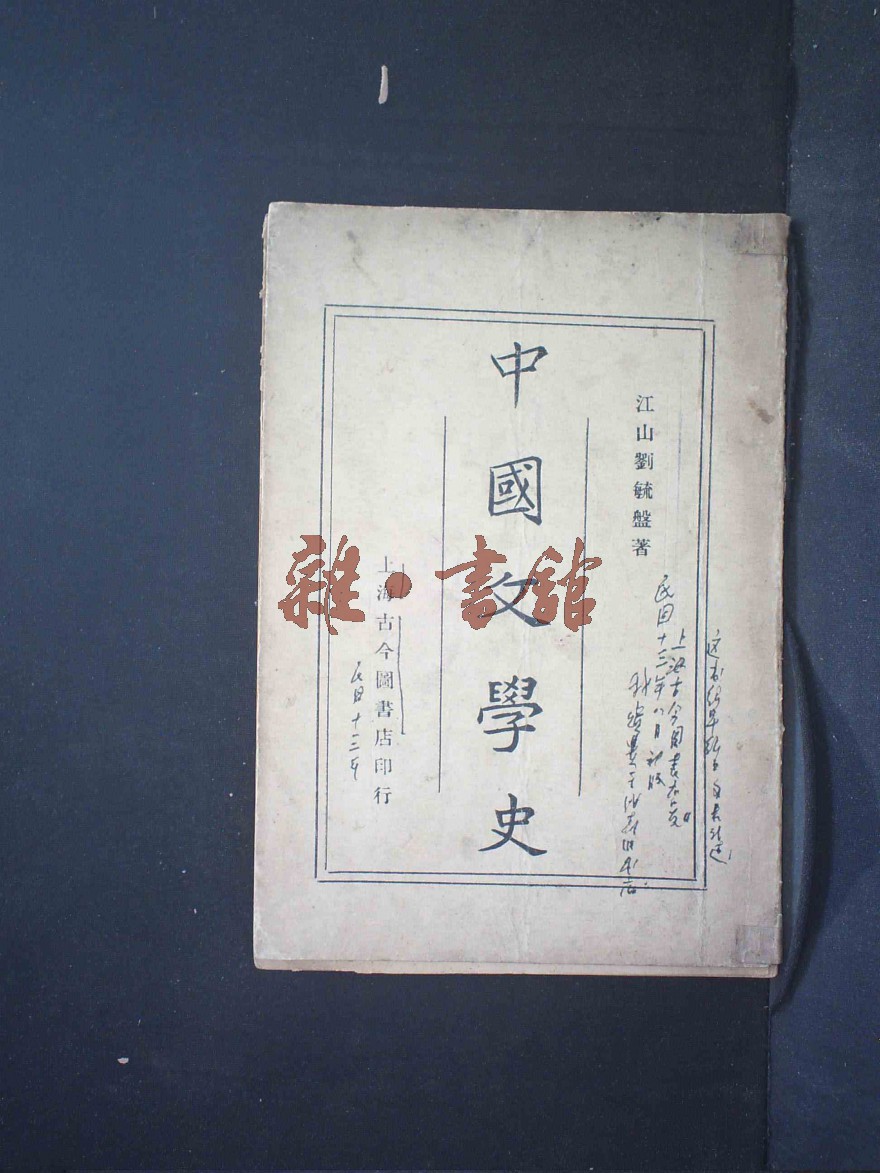 江山劉毓盤著
中國文學史
上海古今圖書店印行
民国十三年
民国十三年八月初版
上海古今図書店
雜·書館